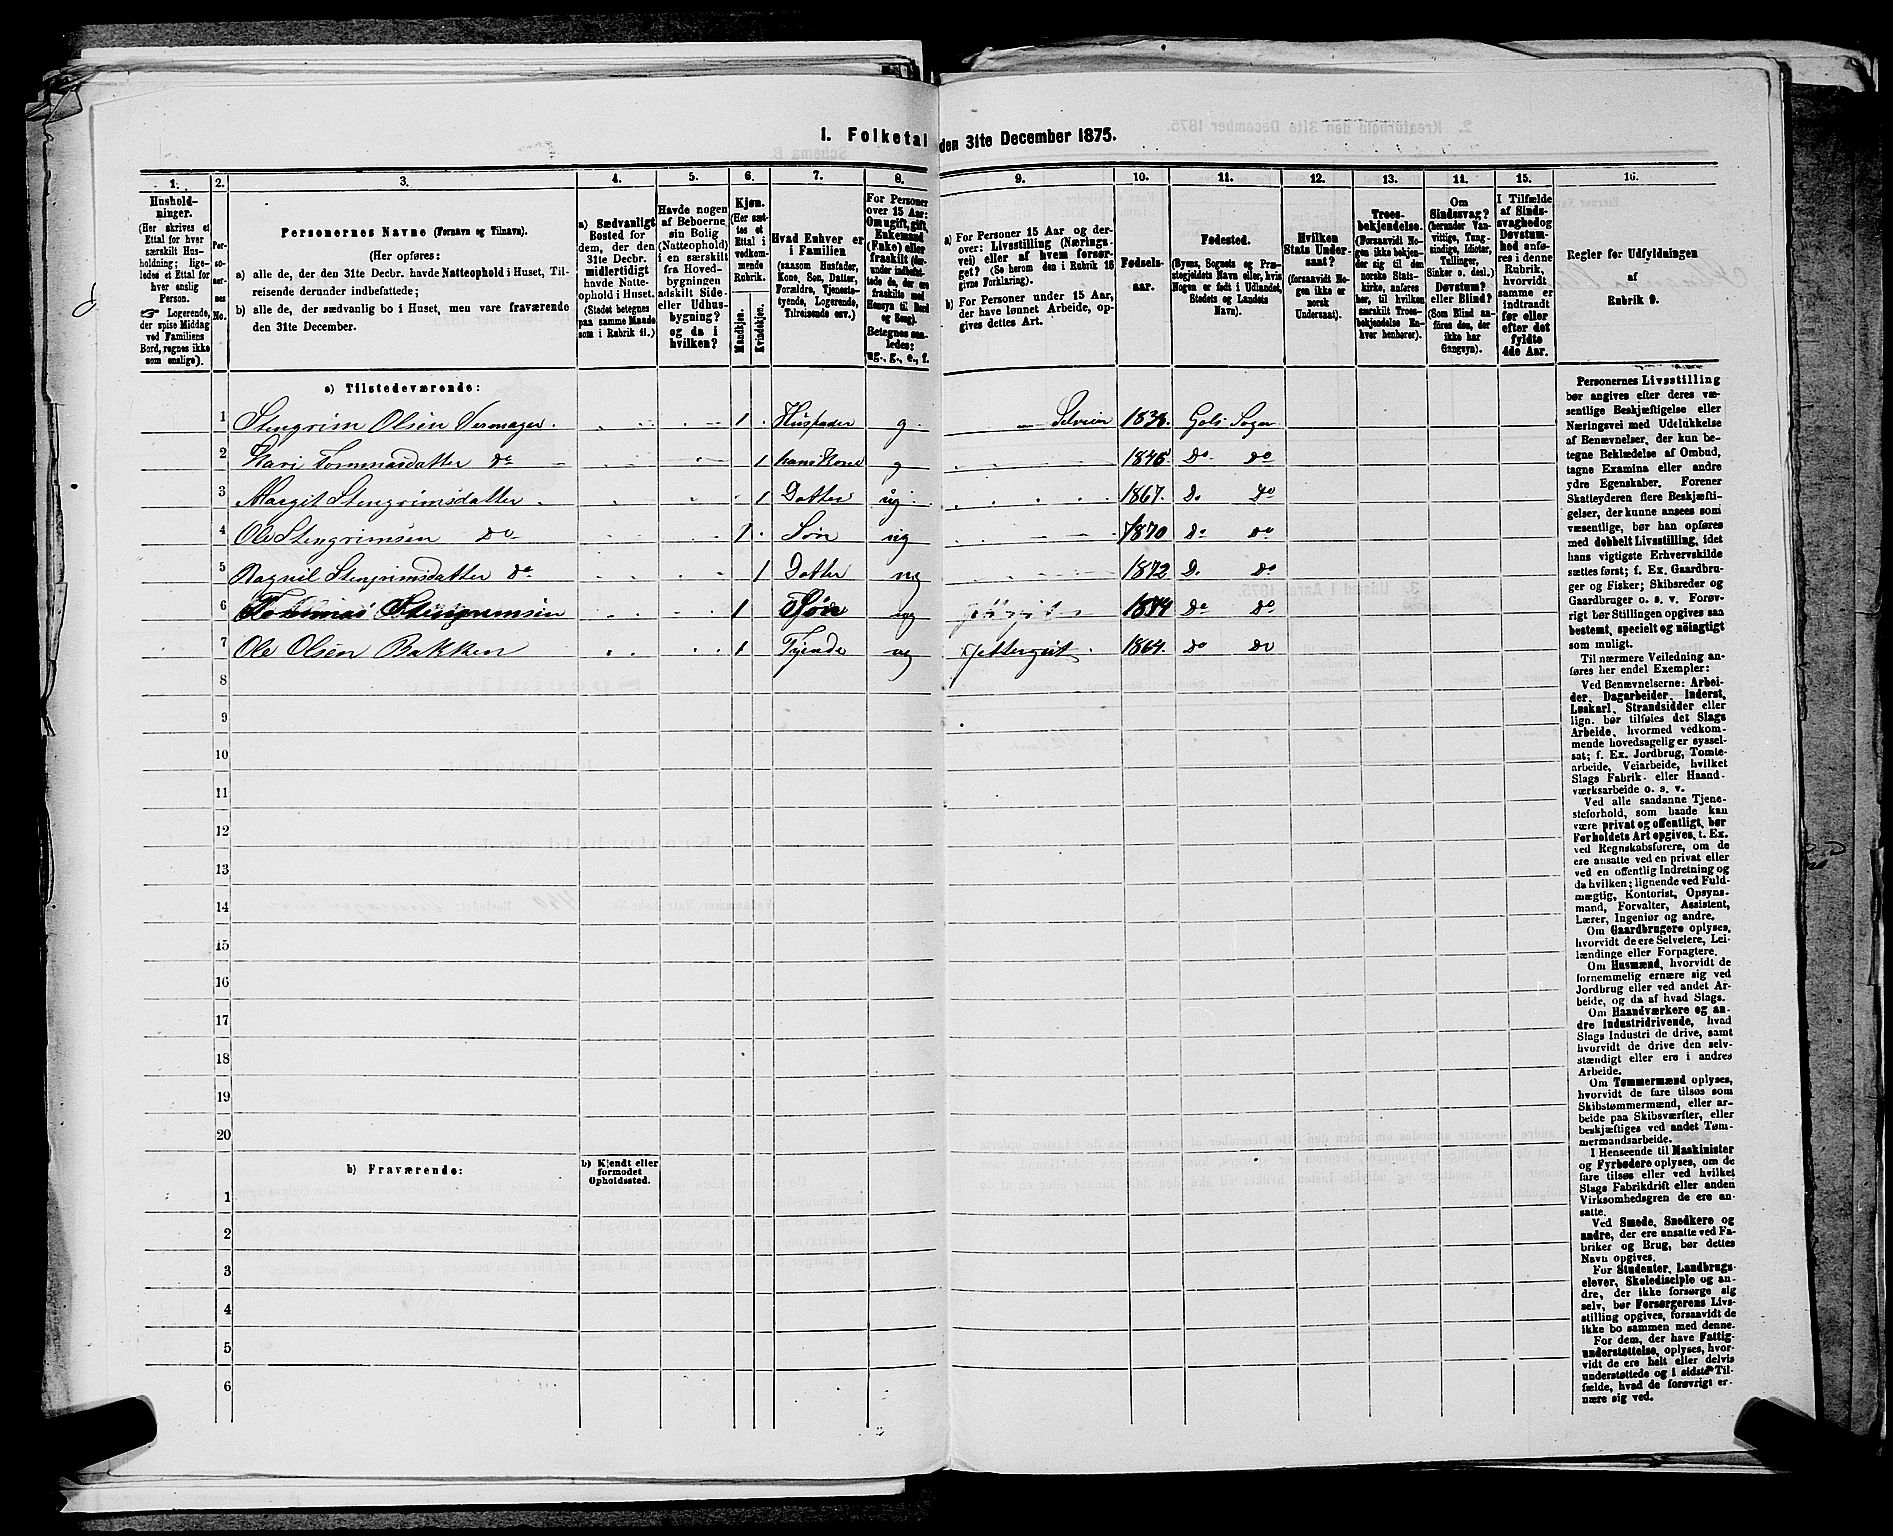 1. Folketal den 31te December 1875.
1. 2. 3. 4. 5. 6. 7. 8. 9. 10. 11. 12. 13. 14. 15. 16.
Hushold-
ninger.
(Her skrives et
Ettal for hver
særskilt Hus-
holdning; lige-
ledes et Ettal for
hver enslig
Person.
Logerende,
der spise Middag
ved Familiens
Bord, regnes ikke
som enslige).
Per-
so-
ner-
nes
No.
Personernes Navne (Fornavn og Tilnavn).
(Her opføres:
a) alle de, der den 31te Decbr. havde Natteophold i Huset, Til-
reisende derunder indbefattede;
b) alle de, der sædvanlig bo i Huset, men vare fraværende
den 31te December.
a) Sædvanligt
Bosted for
dem, der den
31te Decbr.
midlertidigt
havde Natte-
ophold i Huset.
(Stedet betegnes
paa samme Maade
som i Rubrik 11.)
Havde nogen
af Beboerne
sin Bolig
(Natteophold)
i en særskilt
fra Hoved-
bygningen
adskilt Side-
eller Udhus-
bygning?
og da i
hvilken?
Kjøn.
(Her sæt-
tes et
Ettal i
vedkom-
mende
Rubrik.
Mandkjøn.
Kvindekjøn.
Hvad Enhver er
i Familien
(saasom Husfader,
Kone, Søn, Datter,
Forældre, Tjenest-
tyende, Logerende,
Tilreisende osv.)
For Personer
over 15 Aar:
Om ugift, gift,
Enkemand
(Enke) eller
fraskilt
Betegnes saa-
ledes:
ug., g., e., f.
a) For Personer 15 Aar og der-
over: Livsstilling (Nærings-
vei) eller af hvem forsør-
get? (Se herom den i Rubrik 16
givne Forklaring).
b) For Personer under 15 Aar,
der have lønnet Arbeide, op-
gives dettes Art.
Fødsels-
aar.
Fødested.
(Byens, Sognets og Præ-
stegjeldets Navn eller, hvis
Nogen er født i Udlandet,
Stedets og Landets
Navn).
Hvilken
Stats Under-
saat?
(forsaavidt No-
gen ikke er
norsk
Undersaat).
Troes-
bekjendelse.
(Forsaavidt No-
gen ikke bekjen-
der sig til den
norske Stats-
kirke, anføres
her, til hvilken
særskilt Troes-
bekjendelse En-
hver henhører).
Om
Sindssvag?
(herunder Van-
vittige, Tung-
sindige, Idioter,
Tullinger,
Sinker o. desl.)
Døvstum?
eller Blind?
(Som Blind an-
føres den, der
ikke har
Gangsyn).
I Tilfælde
af Sinds-
svaghed og
Døvstum-
hed anfø-
res i denne
Rubrik,
hvorvidt
samme er
indtraadt
før eller
efter det
fyldte
4de Aar.
Regler for Udfyldningen
af
Rubrik 9.
a) Tilstedeværende:
1 Stengrim Olsen Vermager. 1 Husfader g Selveier 1838. Gols Sogn
2 Kari Tommasdatter Do 1 hans Kone g 1845 Do Do
3 Margit Stengrimsdatter 1 Datter ug 1867. D. Do
4 Ole Stengrimsen Do 1 Søn ug 1870 Do Do
5 Ragnil Stengrimsdatter Do 1 Datter ug 1872 D. Do
6 Tommas Stengrimsen 1 Søn ug 1874 Do Do
7 Ole Olsen Bakken 1 Tjende ug Jettergut 1864. Do Do
8
9
10
11
12
13
14
15
16
17
18
19
20
b) Fraværende:
b) Kjendt eller
formodet
Opholdssted.
1
2
3
4
5
6
Personernes Livsstilling
bør angives efter deres væ-
sentlige Beskjæftigelse eller
Næringsvei med Udelukkelse
af Benævnelser, der kun be-
tegne Beklædelse af Ombud,
tagne Examina eller andre
ydre Egenskaber. Forener
Skatteyderen flere Beskjæfti-
gelser, der kunne ansees som
væsentlige, bør han opføres
med dobbelt Livsstilling, idet
hans vigtigste Erhvervskilde
sættes først; f. Ex. Gaardbru-
ger og Fisker; Skibsreder og
Gaardbruger o. s. v. Forøv-
rigt bør Stillingen opgives saa
bestemt, specielt og nöiagtigt
som muligt.
Til nærmere Veiledning an-
føres her endel Exempler:
Ved Benævnelserne: Arbei-
der, Dagarbeider, Inderst,
Løskarl, Strandsidder eller
lign. bør tilføies det Slags
Arbeide, hvormed vedkom-
mende hovedsagelig er syssel-
sat; f. Ex. Jordbrug, Tomte-
arbeide, Veiarbeide, hvilket
Slags Fabrik- eller Haand-
værksarbeide o. s. v.
Ved alle saadanne Tjene-
steforhold, som baade kan
være privat og offentligt, bør
Forholdets Art opgives, t. Ex.
ved Regnskabsførere, om de
ere ansatte ved en privat eller
ved en offentlig Indretning og
da hvilken; lignende ved Fuld-
mægtig, Kontorist, Opsyns-
mand, Forvalter, Assistent,
Lærer, Ingeniør og andre.
Om Gaardbrugere oplyses,
hvorvidt de ere Selveiere, Lei-
lændinge eller Forpagtere.
Om Husmænd, hvorvidt de
fornemmelig ernære sig ved
Jordbrug eller ved andet Ar-
beide, og da af hvad Slags.
Om Haandværkere og an-
dre Industridrivende, hvad
Slags Industri de drive, samt
hvorvidt de drive den selv-
stændigt eller ere i andres
Arbeide.
Om Tømmermænd oplyses,
hvorvidt de fare tilsøs som
Skibstømmermænd, eller ar-
beide paa Skibsværfter, eller
beskjæftiges ved andet Tøm-
mermandsarbeide.
I Henseende til Maskinister
og Fyrbødere oplyses, om de
fare tilsøs eller ved hvilket
Slags Fabrikdrift eller anden
Virksomhedsgren de ere an-
satte.
Ved Smede, Snedkere og
andre, der ere ansatte ved Fa-
briker og Brug, bør dettes
Navn opgives.
For Studenter, Landbrugs-
elever, Skoledisciple og an-
dre, der ikke forsørge sig
selv, bør Forsørgerens Livs-
stilling opgives, forsaavidt de
ikke bo sammen med denne.
For dem, der have Fattig-
understøttelse, oplyses, hvor-
vidt de ere helt eller delvis
understøttede og i sidste Til-
fælde, hvad de forøvrigt er-
nære sig ved.